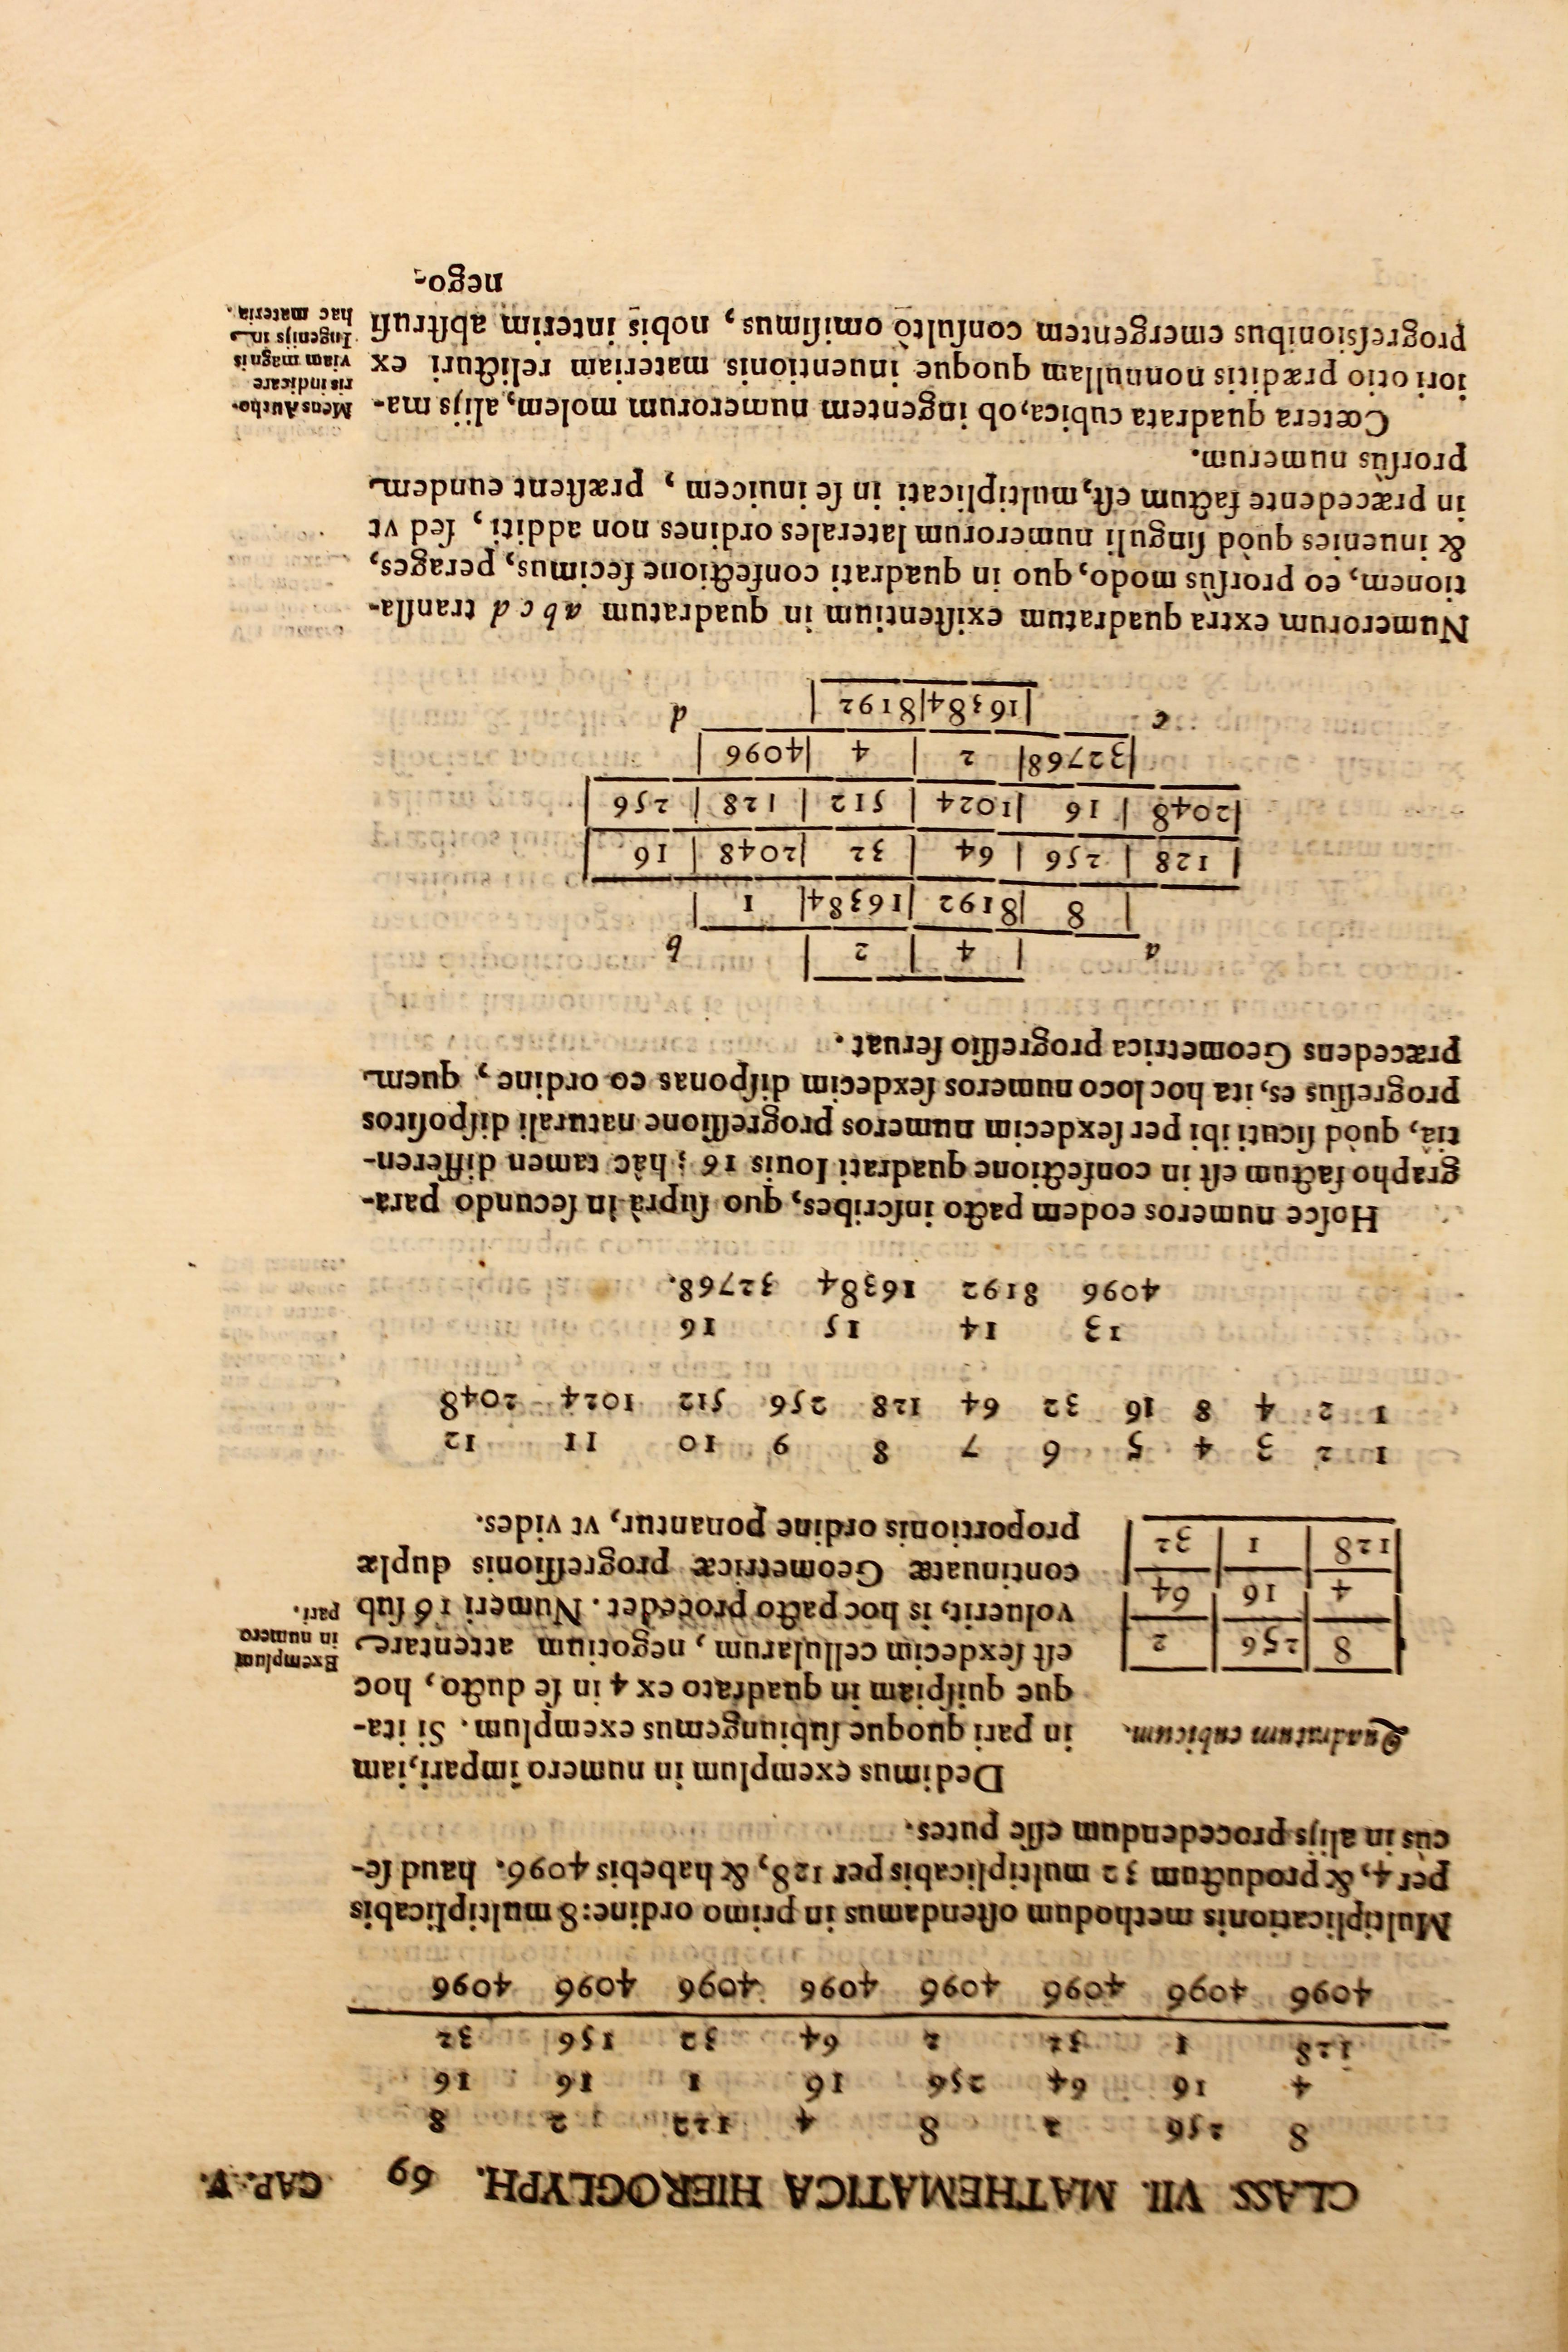 CLASS VII. MATHEMATICA HIEROGLYPH. 69 CAP. V.
8 256 2 8 4 128 2 8
4 16 64 256 16 1 16 16
128 1 32 2 64 32 156 32
4096 4096 4096 4096 4096 4096 4096 4096
Multiplicationis methodum ostendamus in primo ordine: 8 multiplicabis
pèr 4, & productum 32 multiplicabis per 128, & habebis 4096. haud se-
cùs in alijs procedendum esse putes.
Quadratum cubicum.
8 256 2
4 16 64
128 1 32
Dedimus exemplum in numero impari, iam
in pari quoque subiungemus exemplum. Si ita-
que quispiam in quadrato ex 4 in se ducto, hoc
est sexdecim cellularum, negotium attentare
voluerit, is hoc pacto procedet. Numeri 16 sub
continuatæ Geometricæ progressionis duplæ
proportionis ordine ponantur, vt vides.
Exemplum
in numero
pari.
1 2 3 4 5 6 7 8 9 10 11 12
1 2 4 8 16 32 64 128 256 512 1024 2048
13 14 15 16
4096 8192 16384 32768.
Hosce numeros eodem pacto inscribes, quo suprà in secundo para-
grapho factum est in confectione quadrati Iouis 16; hâc tamen differen-
tia, quòd sicuti ibi per sexdecim numeros progressione naturali dispositos
progressus es, ita hoc loco numeros sexdecim disponas eo ordine, quem
præcedens Geometrica progressio seruat.
a 4 2 b
8 8192 16384 1
128 256 64 32 2048 16
2048 16 1024 512 128 256
32768 2 4 4096
c 16384 8192 d
Numerorum extra quadratum existentium in quadratum a b c d transla-
tionem, eo prorsus modo, quo in quadrati confectione fecimus, perages,
& inuenies quòd singuli numerorum laterales ordines non additi, sed vt
in præcedente factum est, multiplicati in se inuicem, præstent eundem
prorsus numerum.
Cœtera quadrata cubica, ob ingentem numerorum molem, alijs ma-
iori otio præditis nonnullam quoque inuentionis materiam relicturi ex
progressionibus emergentem consultò omisimus, nobis interim abstrusi
Mens Autho-
ris indicare
viam magnis
Ingenijs in
hac materia.
nego-